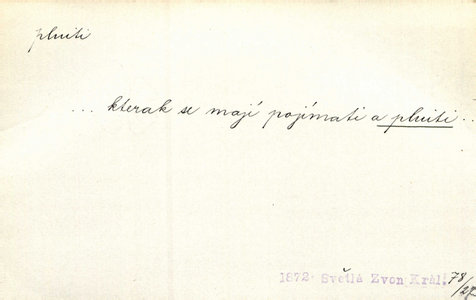 plniti
... kterak se mají pojímati a plniti ..
1872 Světlá Zvon Král.
78/27